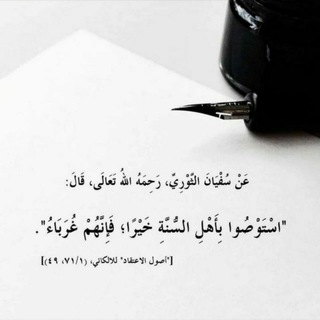 عَنْ سُفْيَانَ الثَّوْرِيِّ، رَحِمَهُ اللهُ تَعَالَى، قَالَ:
"اسْتَوْصُوا بِأَهْلِ السُّنَّةِ خَيْرًا؛ فَإِنَّهُمْ غُرَبَاءُ".
["أصول الاعتقاد" للالكائي، (٧١/١، ٤٩)]